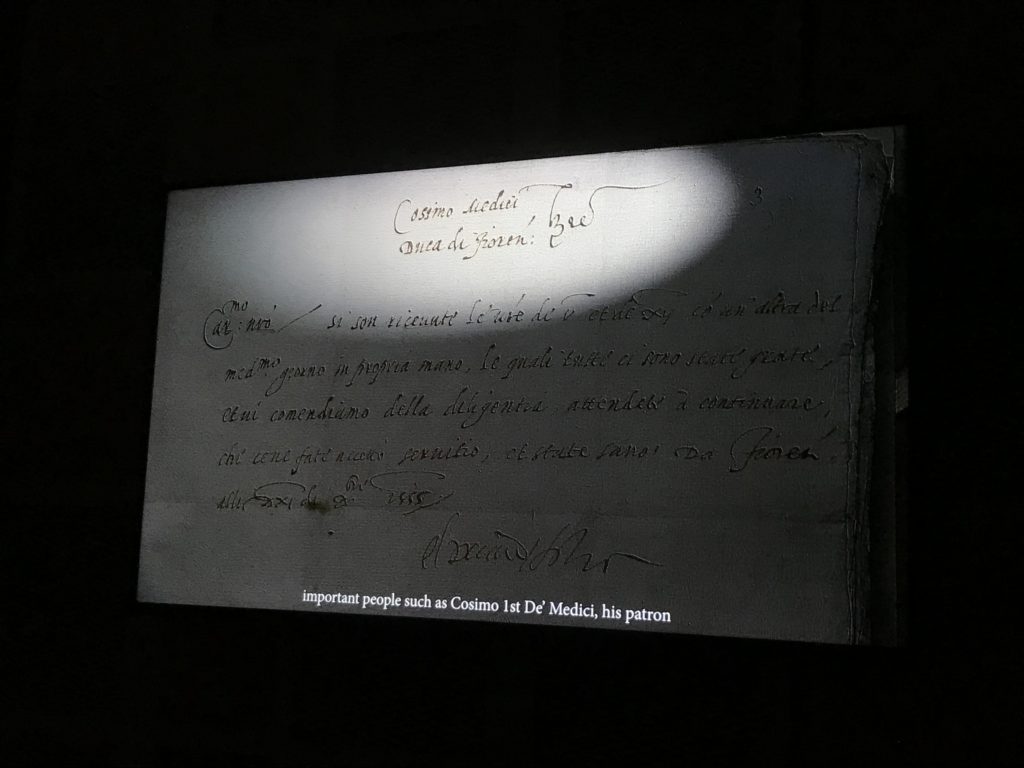 Cosimo Medici
Duca di Fioren:
3
Carmo: nro si son riceuute le vre de V et de XII co un' altra del
medmo giorno in propria mano, le quali tutte ci sono state grate,
et vi comendiamo della diligentia, attendete à continuare,
che cene fate acceto seruitio, et state sano. Da Fioren:
alli XXI di Xbre 1555
important people such as Cosimo 1st De' Medici, his patron